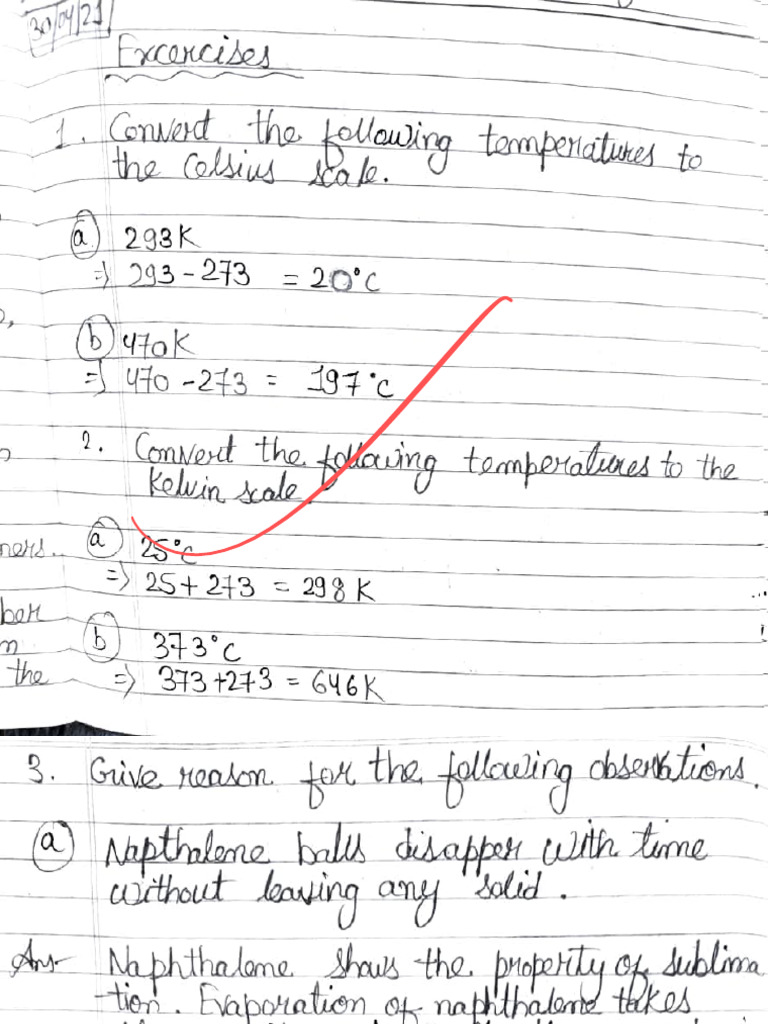 30/04/21
Excercises
1. Convert the following temperatures to
the Celsius scale.
(a) 293K
=> 293 - 273 = 20°C
(b) 470K
=> 470 - 273 = 197°C
2. Convert the following temperatures to the
Kelvin scale
ners.
(a) 25°C
=> 25 + 273 = 298 K
ber
(b) 373°C
the
=> 373 + 273 = 646K
3. Give reason for the following observations.
(a) Napthalene balls disapper with time
without leaving any solid.
Ans- Naphthalene shows the property of sublima
-tion. Evaporation of naphthalene takes